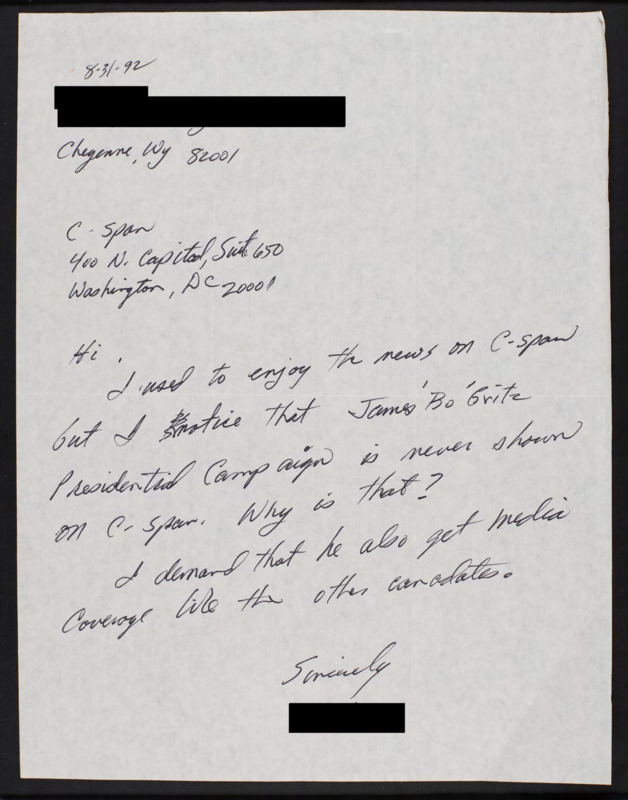 8-31-92
Cheyenne, Wy 82001
C-Span
400 N. Capitol, Suite 650
Washington, DC 20001
Hi,
I used to enjoy the news on C-span
but I notice that James 'Bo' Gritz
Presidential Campaign is never shown
on C-Span. Why is that?
I demand that he also get media
Coverage like the other canadates.
Sincerely